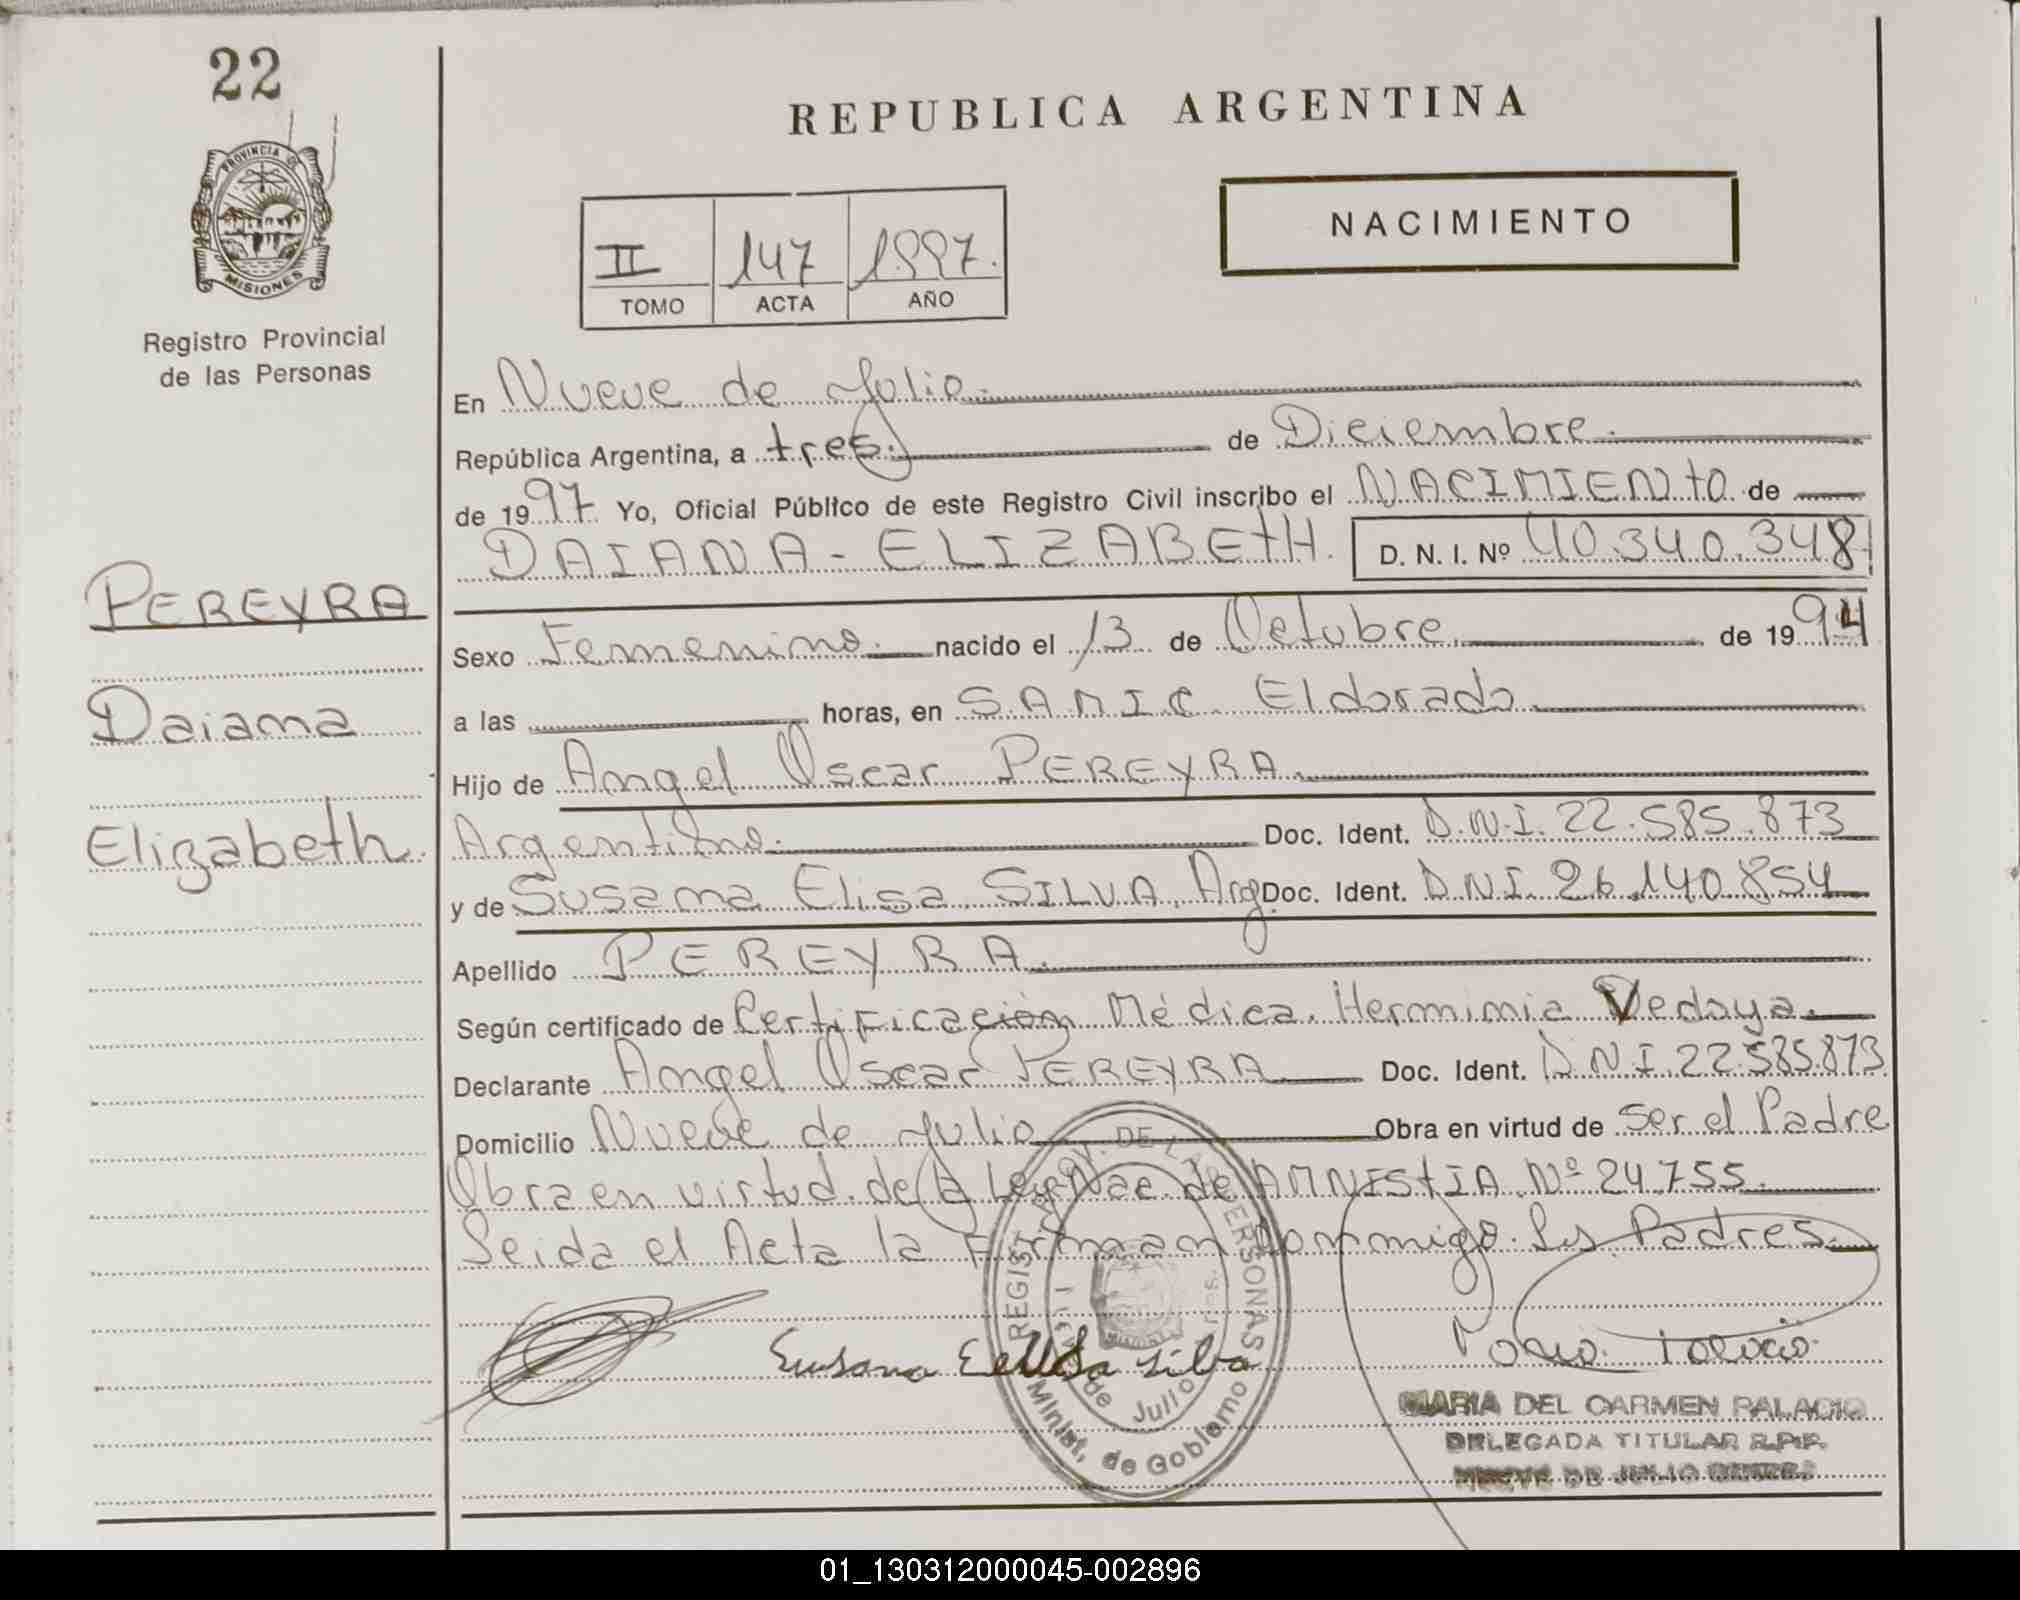 22
PROVINCIA DE
MISIONES
Registro Provincial
de las Personas
PEREYRA
Daiana
Elizabeth.
REPUBLICA ARGENTINA
II 147 1997.
TOMO ACTA AÑO
NACIMIENTO
En Nueve de Julio.
República Argentina, a tres. de Diciembre.
de 1997 Yo, Oficial Público de este Registro Civil inscribo el NACIMIENTO de
DAIANA - ELIZABETH. D. N. I. Nº 40.340.348
Sexo Femenino. nacido el 13 de Octubre. de 1994
a las horas, en S.A.M.I.C. Eldorado
Hijo de Angel Oscar PEREYRA.
Argentino. Doc. Ident. D.N.I. 22.585.873
y de Susana Elisa SILVA, Arg. Doc. Ident. D.N.I. 26.140.854
Apellido PEREYRA.
Según certificado de Certificación Médica. Herminia Vedoya.
Declarante Angel Oscar PEREYRA Doc. Ident. D.N.I. 22.585.873
Domicilio Nueve de Julio Obra en virtud de ser el Padre
Obra en virtud de la Ley Nac. de AMNISTIA Nº 24.755.
Leida el Acta la Firman Conmigo. Los Padres.
Susana Elissa Silva
REGIST. PROV. DE LAS PERSONAS
de Julio
Minist. de Gobierno
MARIA DEL CARMEN PALACIO
DELEGADA TITULAR R.P.P.
NUEVE DE JULIO
01_130312000045-002896